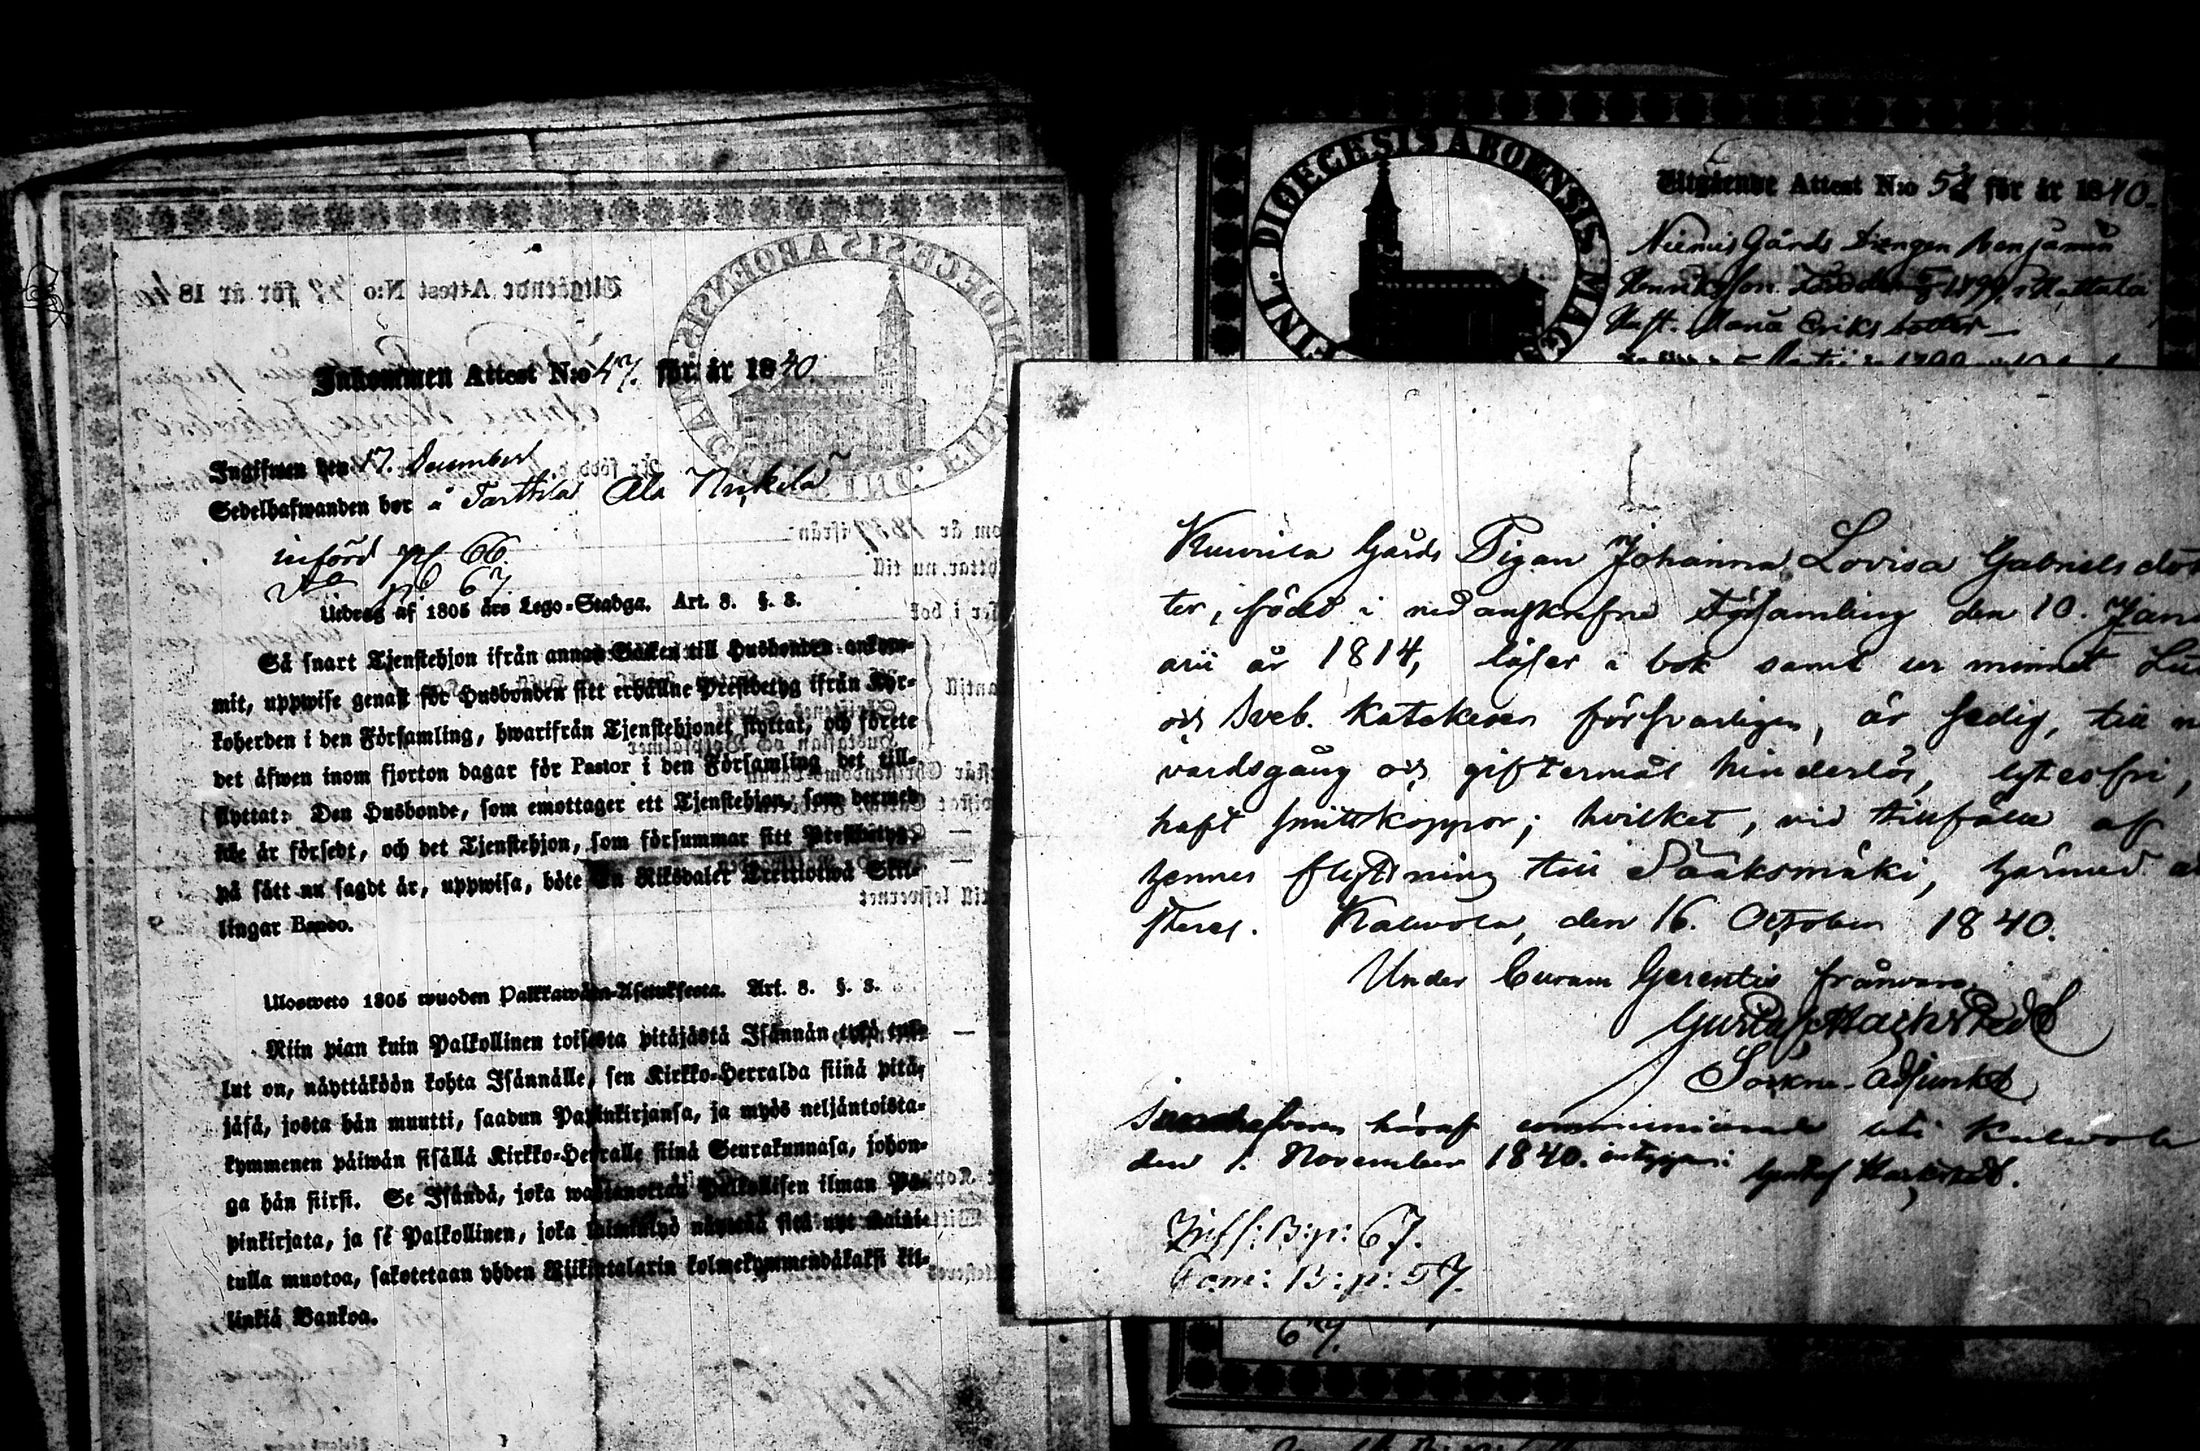 Inkommen Attest N:o 47. för år 1840.
Ingifwen den 17. December
Sedelhafwanden bor å Tarttila Ala Nukila
införd pg 66.
pg 67.
Utdrag af 1805 års Lego-Stadga. Art. 8. §. 3.
Så snart Tjenstehjon ifrån annan Socken till Husbonden ankom-
mit, uppwise genast för Husbonden sitt erhållne Prestbetyg ifrån Kyr-
koherden i den Församling, hwarifrån Tjenstehjonet flyttat, och förete
det äfwen inom fjorton dagar för Pastor i den Församling det till-
flyttat: Den Husbonde, som emottager ett Tjenstehjon, som dermed
icke är försedt, och det Tjenstehjon, som försummar sitt Prestbetyg,
på sätt nu sagdt är, uppwisa, böte En Riksdaler Trettiotwå Skil-
lingar Banco.
Ulosweto 1805 wuoden Palkkawäen-Asetuksesta. Art. 8. §. 3.
Niin pian kuin Palkollinen toisesta pitäjästä Isännän tykö tul-
lut on, näyttäköön kohta Isännälle, sen Kirkko-Herralda siinä pitä-
jäsä, josta hän muutti, saadun Papinkirjansa, ja myös neljäntoista-
kymmenen päiwän sisällä Kirkko-Herralle siinä Seurakunnasa, johon-
ga hän siirsi. Se Isändä, joka wastanottaa Palkollisen ilman Pa-
pinkirjata, ja se Palkollinen, joka
tulla muotoa, sakotetaan yhden Riikintalarin kolmekymmendäkaksi kil-
linkiä Bankoa.
DIOECESIS ABOENSIS MAG FINL.
Utgående Attest N:o för år 1840.
Niemis Gårds Drengen Benjamin
Henriksson född 1799 i Mattala
Hust. Maria Eriksdotter
Gårds Pigan Johanna Lovisa Gabrielsdot
ter, född i nedanskrefne Församling den 10. Janu
arii år 1814, läser i bok samt ur minnet Lu
och Sveb. Katekeser försvarligen, är sedig, till n
vardsgång och giftermål hinderlös, lytesfri,
haft smittkoppor; hvilket, vid tillfälle af
hennes flyttning till Sääksmäki, härmed at
steras. Kalwola, den 16. October 1840.
Under Curam Gerentis frånvaro,
Gustaf Hackstedt
Sockne-Adjunkt
häraf communicerade uti Kalwola
den 1. November 1840. intygar: Gustaf Hackstedt.
Inff: B: p: 67.
Com: B: p: 57.
67.